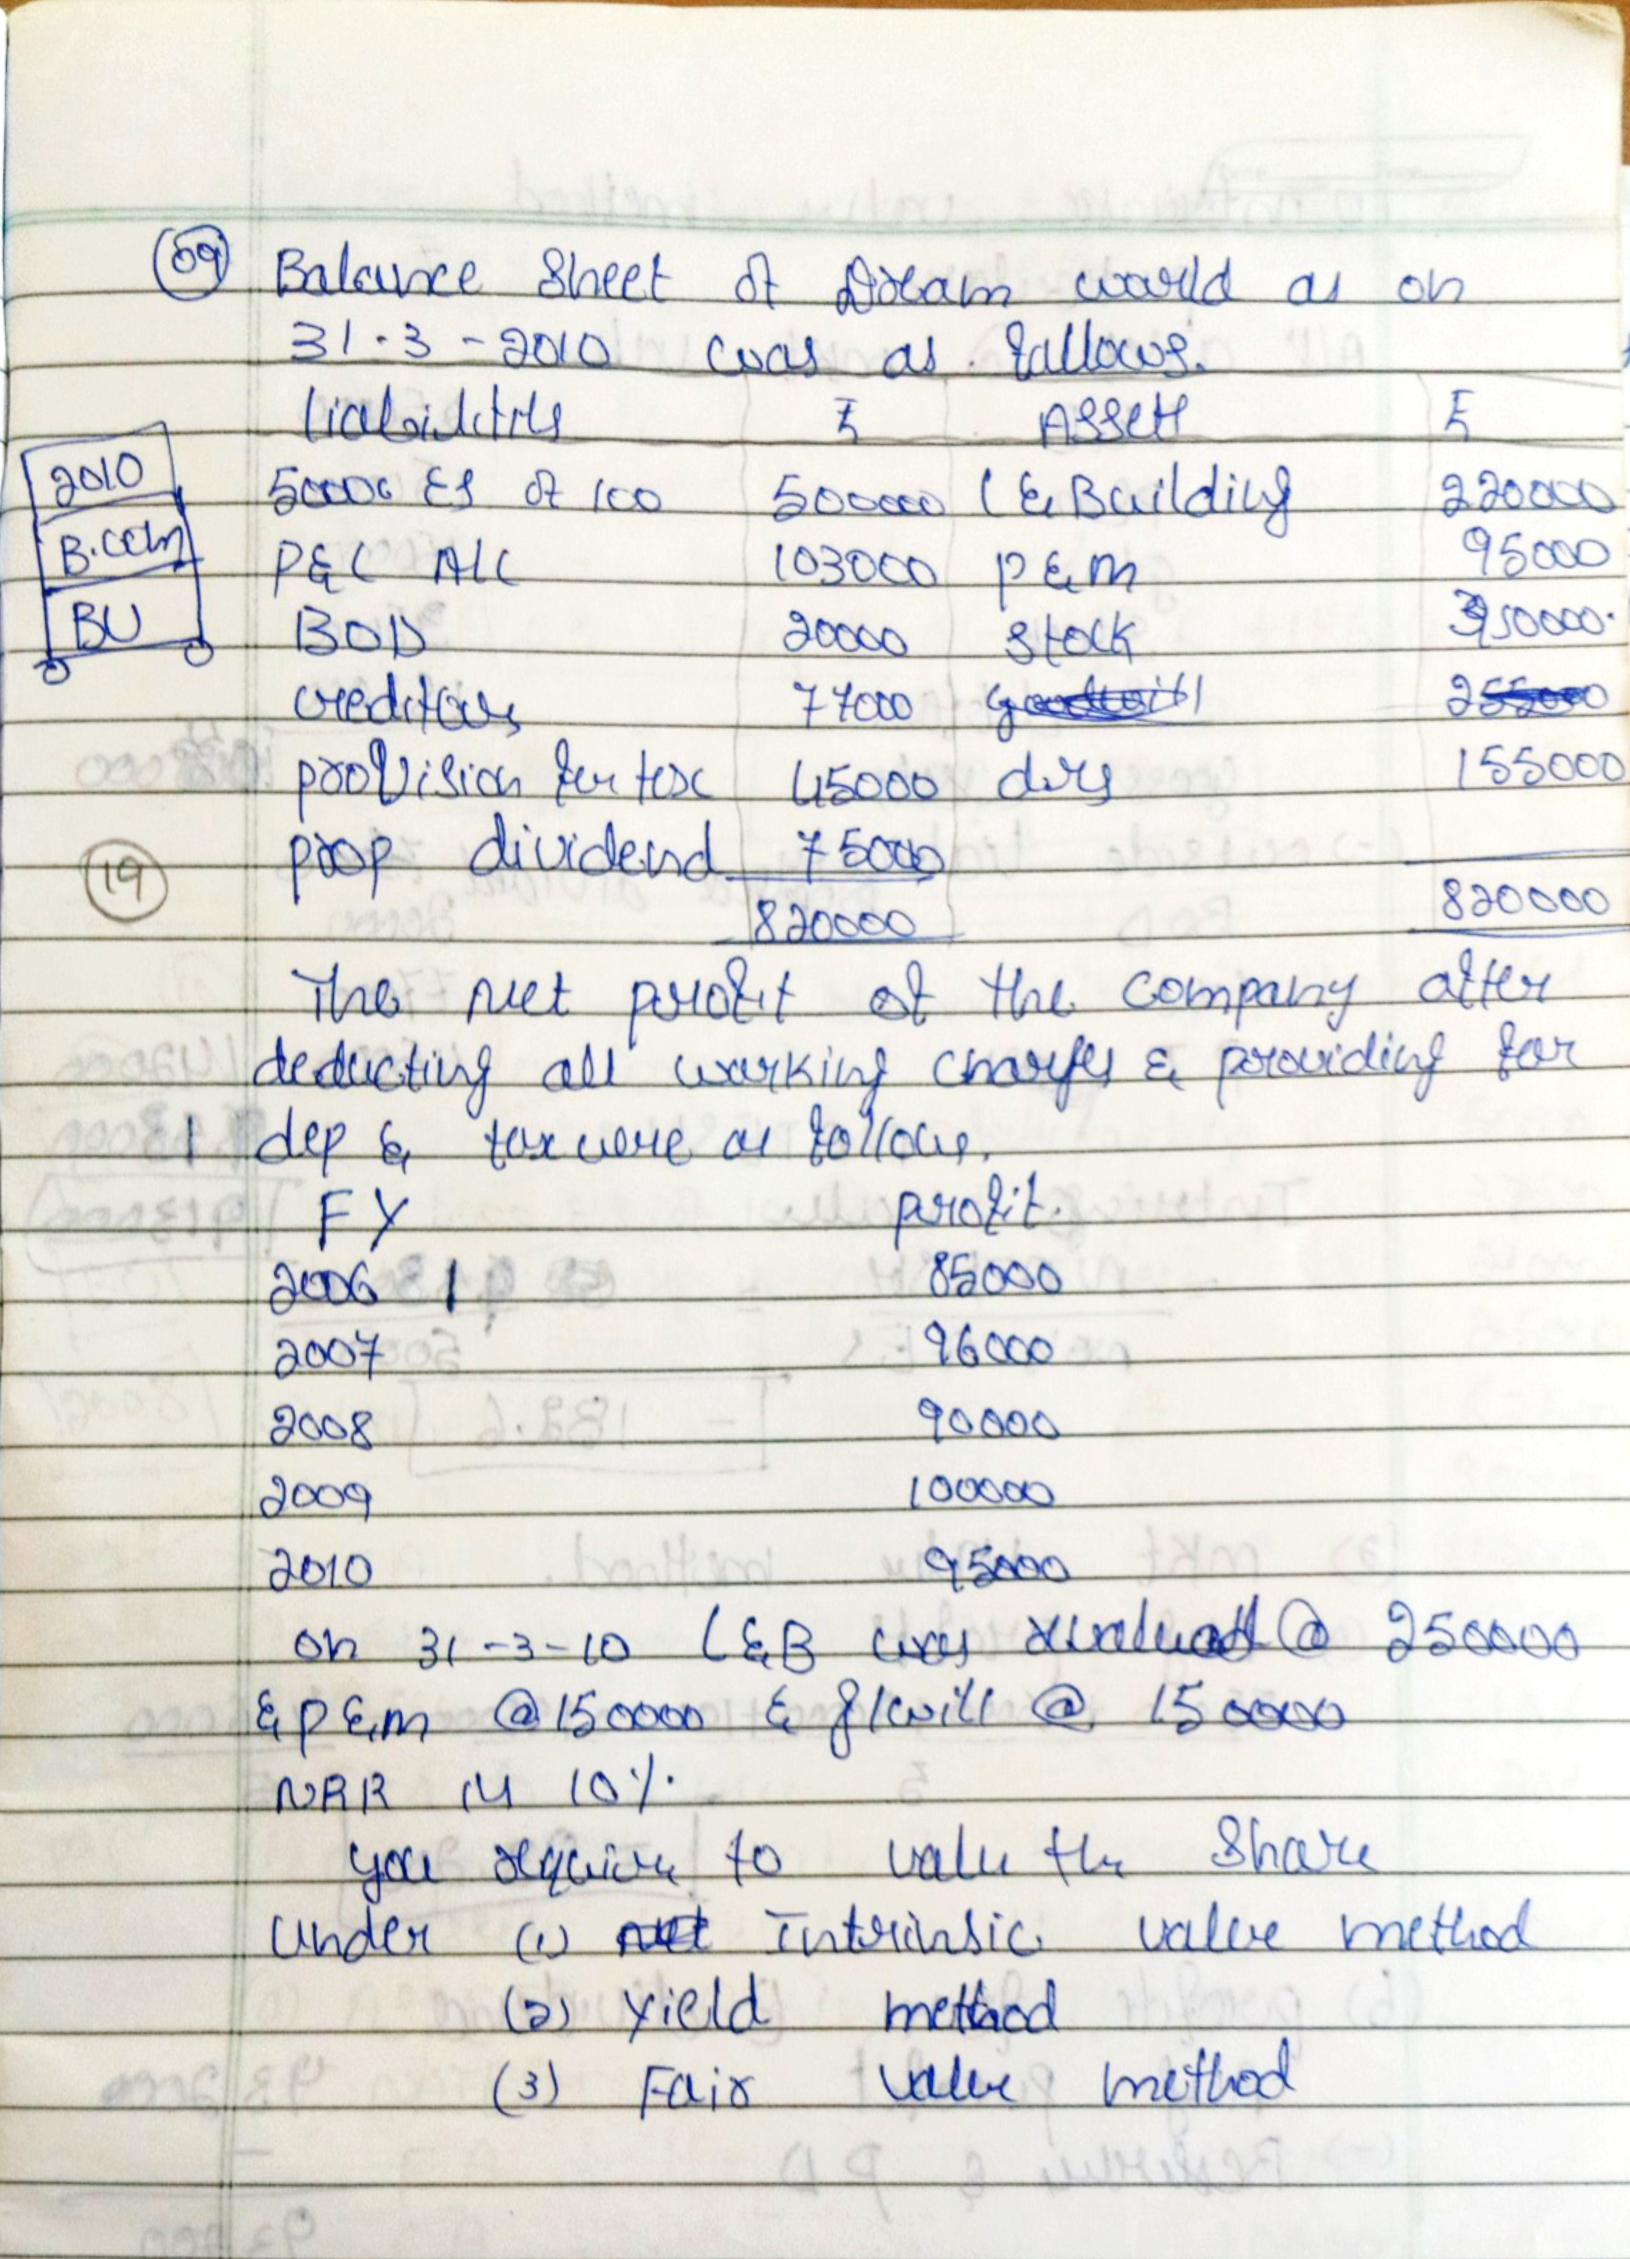 09 Balance Sheet of Dream world as on
31-3-2010 was as follows.
liabilities ₹ Assets ₹
2010
50000 ES of 100 500000 L & Building 220000
B.com
P&L A/C 103000 P & M 95000
BU
BOD 20000 stock 350000
creditors 77000 goodwill
provision for tax 45000 drs 155000
19
prop dividend 75000
820000 820000
The net profit of the company after
deducting all working charges & providing for
dep & tax were as follows.
FY profit.
2006 85000
2007 96000
2008 90000
2009 100000
2010 95000
on 31-3-10 L&B was revalued @ 250000
& P&M @ 150000 & g/will @ 150000
NRR is 10%.
you require to value the Share
Under (1) net Intrinsic value method
(2) Yield method
(3) Fair value method